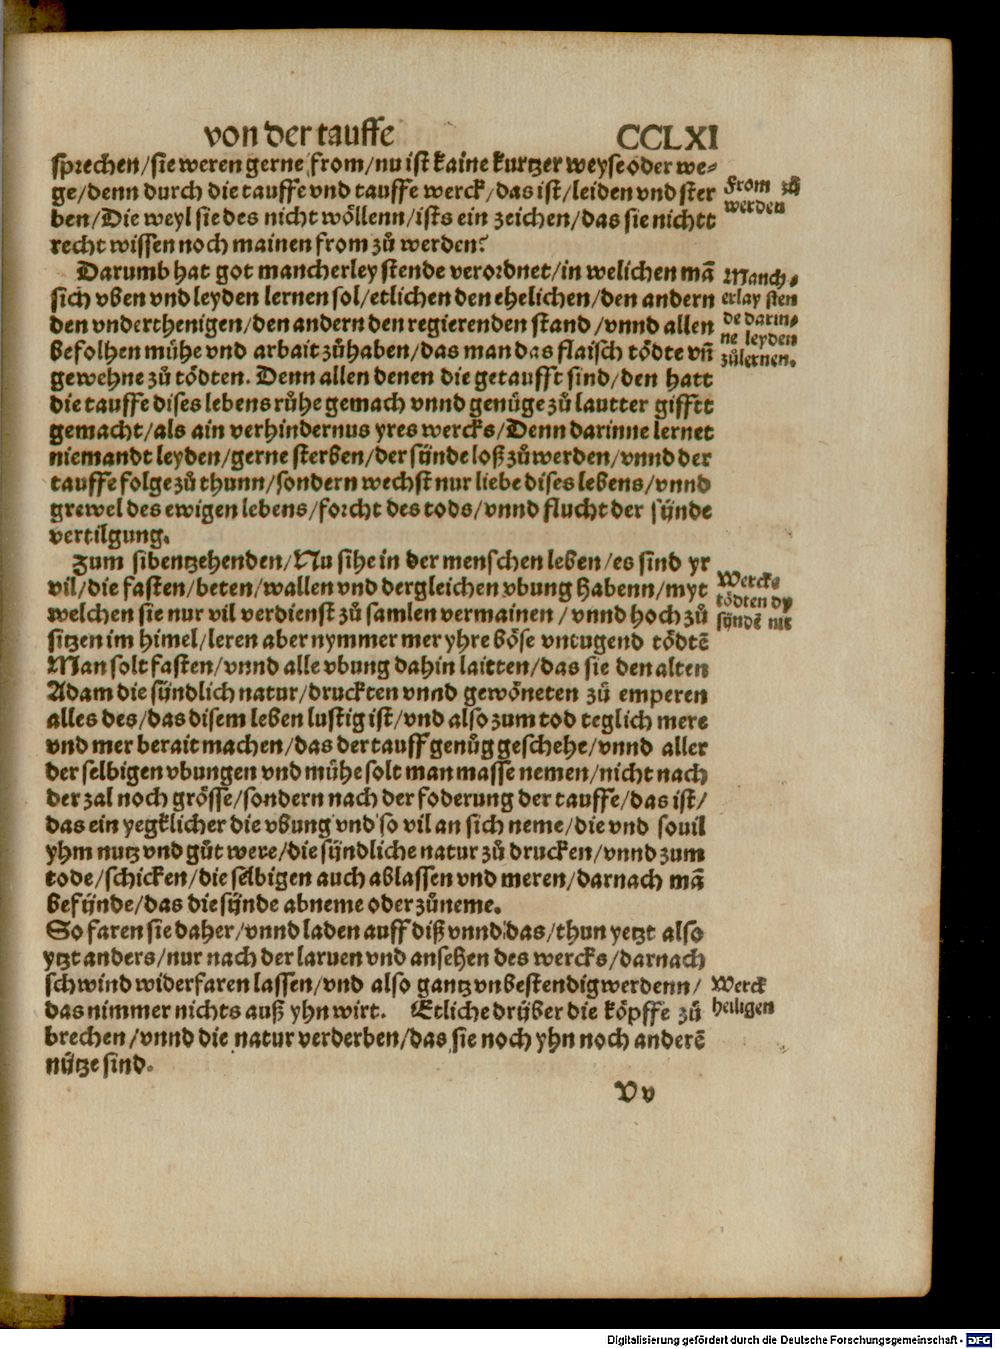 von der tauffe CCLXI
sprechen/sie weren gerne from/nu ist kaine kurtzer weyse oder we⸗
ge/denn durch die tauffe vnd tauffe werck/das ist/leiden vnd ster
ben/Die weyl sie des nicht wöllenn/ists ein zeichen/das sie nichtt
recht wissen noch mainen from zů werden?
From zů
werden
Darumb hat got mancherley stende verordnet/in welichen mā
sich vben vnd leyden lernen sol/etlichen den ehelichen/den andern
den vnderthenigen/den andern den regierenden stand/vnnd allen
befolhen mühe vnd arbait zůhaben/das man das flaisch tödte vn̄
gewehne zů tödten. Denn allen denen die getaufft sind/den hatt
die tauffe dises lebens růhe gemach vnnd genüge zů lautter gifftt
gemacht/als ain verhindernus yres wercks/Denn darinne lernet
niemandt leyden/gerne sterben/der sünde loß zů werden/vnnd der
tauffe folge zů thunn/sondern wechst nur liebe dises lebens/vnnd
grewel des ewigen lebens/forcht des tods/vnnd flucht der sünde
vertilgung.
Manch⸗
erlay sten
de darin⸗
ne leyden
zůlernen.
Zum sibentzehenden/Nu sihe in der menschen leben/es sind yr
vil/die fasten/beten/wallen vnd dergleichen vbung habenn/myt
welchen sie nur vil verdienst zů samlen vermainen/vnnd hoch zů
sitzen im himel/leren aber nymmer mer yhre böse vntugend tödtē
Man solt fasten/vnnd alle vbung dahin laitten/das sie den alten
Adam die sündlich natur/druckten vnnd gewöneten zů emperen
alles des/das disem leben lustig ist/vnd also zum tod teglich mere
vnd mer berait machen/das der tauff genůg geschehe/vnnd aller
der selbigen vbungen vnd mühe solt man masse nemen/nicht nach
der zal noch grösse/sondern nach der foderung der tauffe/das ist/
das ein yegklicher die vbung vnd so vil an sich neme/die vnd souil
yhm nutz vnd gůt were/die sündliche natur zů drucken/vnnd zum
tode/schicken/die selbigen auch ablassen vnd meren/darnach mā
befünde/das die sünde abneme oder zůneme.
Wercke
tödten dy
sündē nit
So faren sie daher/vnnd laden auff diß vnnd das/thun yetzt also
ytzt anders/nur nach der laruen vnd ansehen des wercks/darnach
schwind widerfaren lassen/vnd also gantz vnbestendig werdenn/
das nimmer nichts auß yhn wirt. Etliche drüber die köpffe zů
brechen/vnnd die natur verderben/das sie noch yhn noch anderē
nütze sind.
Werck
heiligen
Vv
Digitalisierung gefördert durch die Deutsche Forschungsgemeinschaft - DFG